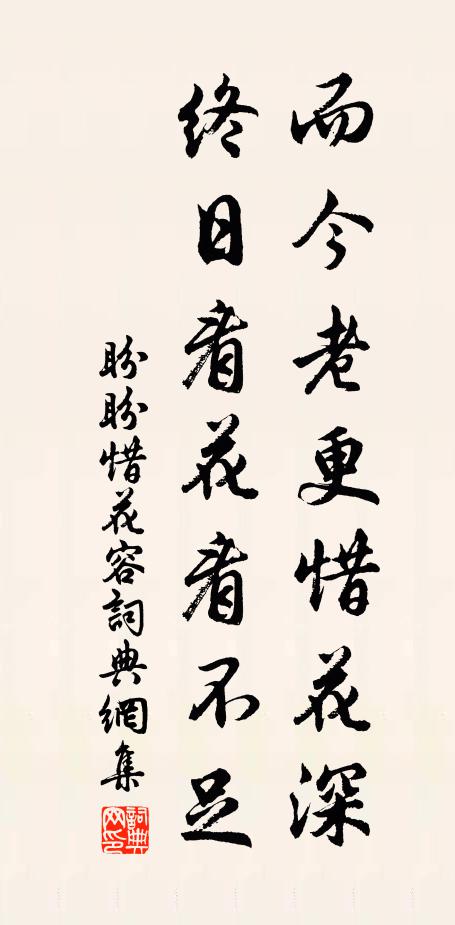 而今老更惜花深
終日看花看不足
盼盼惜花容詞典網集
詞典网印